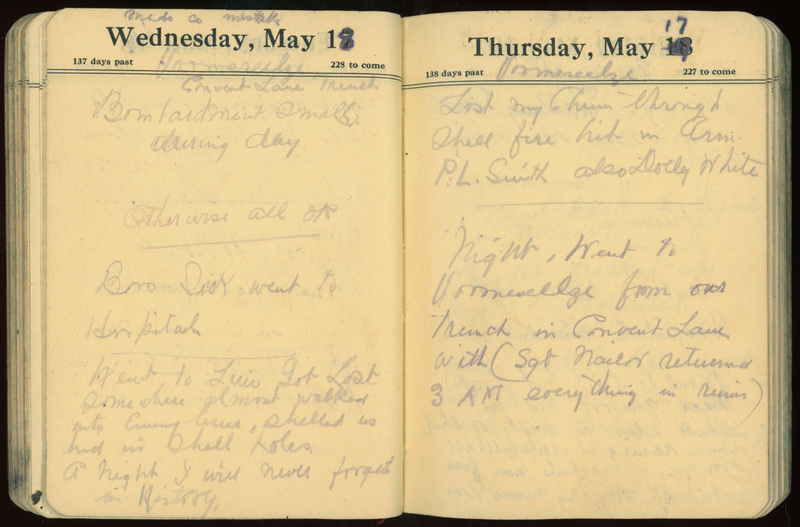 made a mistake
Wednesday, May 18
137 days past 228 to come
Voormezeelge
Convent Lane Trench
Bombardment small
during day
Otherwise all OK
Bro Dick went to
Hospital
Went to Line Got Lost
somewhere almost walked
into Enemy lines, shelled us
hid in shell holes
A Night I will never forget
in History,
17
Thursday, May 18
138 days past 227 to come
Voormeseelge
Lost my Chum through
shell fire hit in Arm
P. L. Smith also Dolly White
Night, Went to
Voormeseelge from our
trench in Convent Lane
with (Sgt Nailor returned
3 AM everything in ruins)